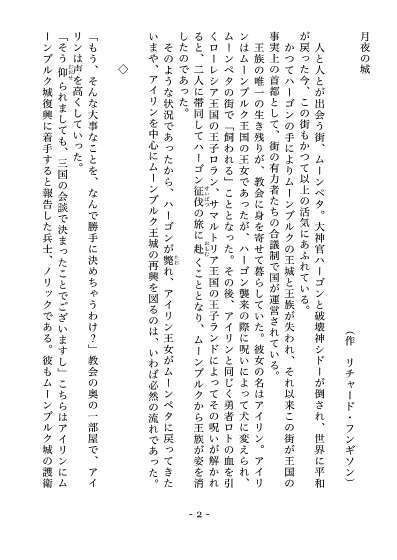 月夜の城
（作　リチャード・フンギソン）
　人と人とが出会う街、ムーンペタ。大神官ハーゴンと破壊神シドーが倒され、世界に平和
が戻った今、この街もかつて以上の活気にあふれている。
　かつてハーゴンの手によりムーンブルクの王城と王族が失われ、それ以来この街が王国の
事実上の首都として、街の有力者たちの合議制で国が運営されている。
　王族の唯一の生き残りが、教会に身を寄せて暮らしていた。彼女の名はアイリン。アイリ
ンはムーンブルク王国の王女であったが、ハーゴン襲来の際に呪いによって犬に変えられ、
ムーンペタの街で「飼われる」こととなった。その後、アイリンと同じく勇者ロトの血を引
くローレシア王国の王子ロラン、サマルトリア王国の王子ランドによってその呪いが解かれ
ると、二人に帯同してハーゴン征伐の旅に赴くこととなり、ムーンブルクから王族が姿を消
したのであった。
　そのような状況であったから、ハーゴンが斃れ、アイリン王女がムーンペタに戻ってきた
いまや、アイリンを中心にムーンブルク王城の再興を図るのは、いわば必然の流れであった。
◇
「もう、そんな大事なことを、なんで勝手に決めちゃうわけ？」教会の奥の一部屋で、アイ
リンは声を高くしていった。
「そう仰られましても、三国の会談で決まったことでございますし」こちらはアイリンにム
ーンブルク城復興に着手すると報告した兵士、ノリックである。彼もムーンブルク城の護衛
- 2 -